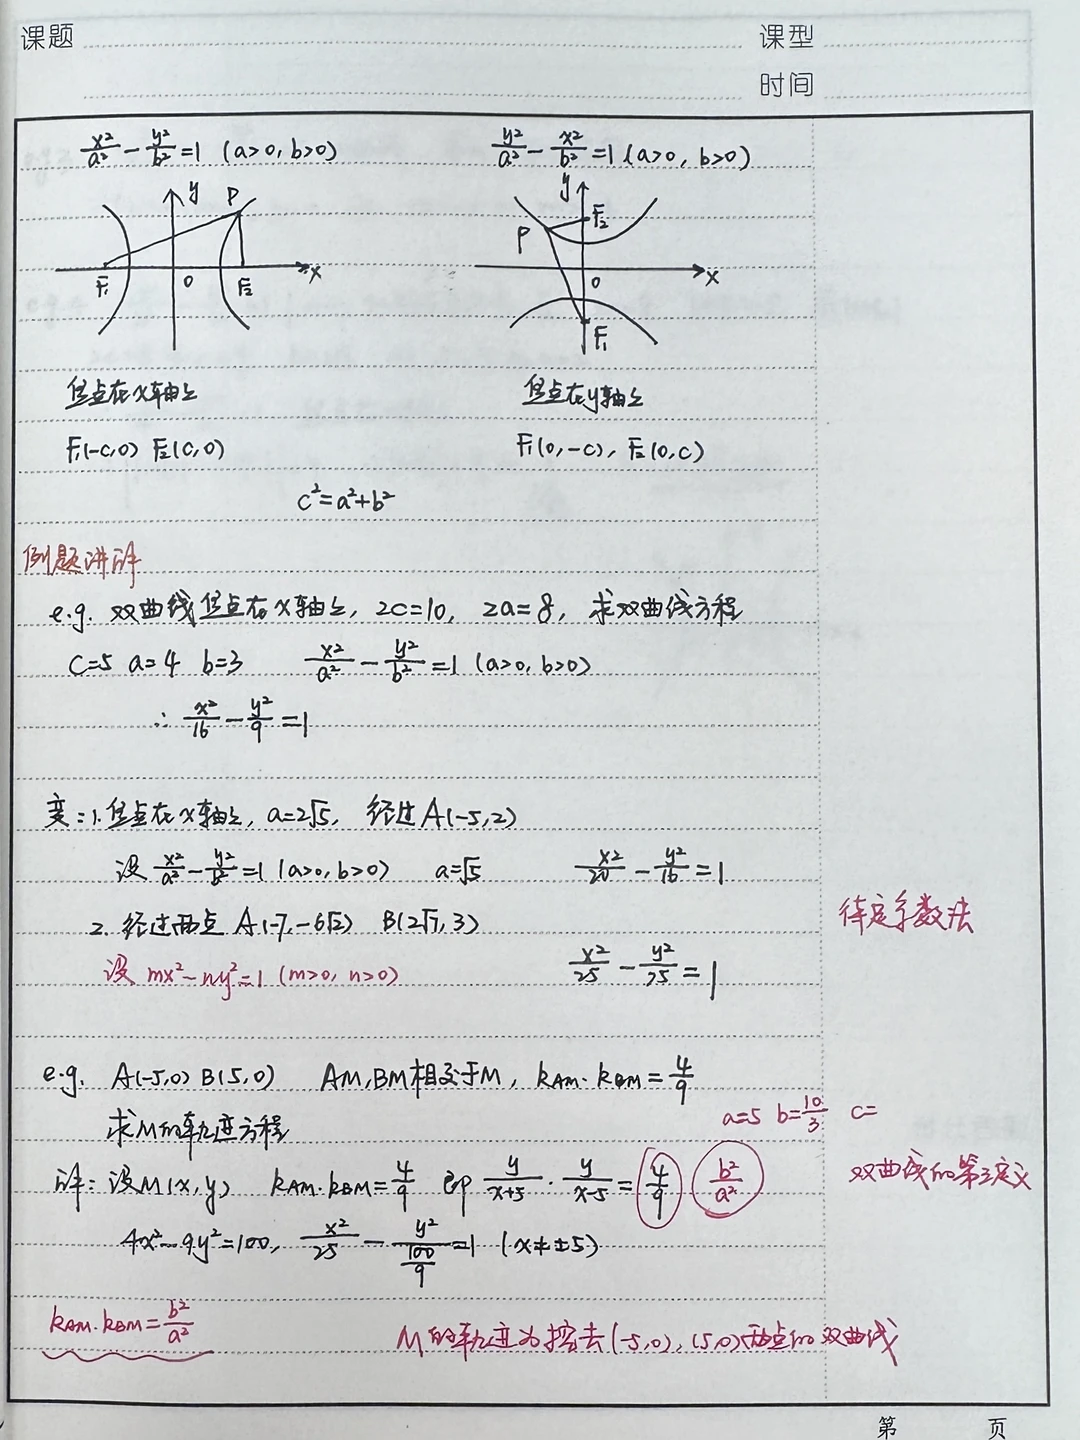 课题
课型
时间
x²/a² - y²/b² = 1 (a>0, b>0)
y²/a² - x²/b² = 1 (a>0, b>0)
y P
F₁ O F₂ x
y
P F₂
O x
F₁
焦点在x轴上
焦点在y轴上
F₁(-c,0) F₂(c,0)
F₁(0,-c), F₂(0,c)
c²=a²+b²
例题讲解
e.g. 双曲线焦点在x轴上, 2c=10, 2a=8, 求双曲线方程
c=5 a=4 b=3 x²/a² - y²/b² = 1 (a>0, b>0)
∴ x²/16 - y²/9 = 1
变: 1. 焦点在x轴上, a=2√5, 经过A(-5,2)
设 x²/a² - y²/b² = 1 (a>0, b>0) a=√5 x²/20 - y²/16 = 1
2. 经过两点 A(-7, -6√2) B(2√7, 3)
待定系数法
设 mx²-ny²=1 (m>0, n>0) x²/25 - y²/75 = 1
e.g. A(-5,0) B(5,0) AM, BM相交于M, kAM·kBM = 4/9
求M的轨迹方程
a=5 b=10/3 c=
解: 设M(x,y) kAM·kBM = 4/9 即 y/(x+5) · y/(x-5) = 4/9 b²/a²
双曲线的第三定义
4x²-9y²=100, x²/25 - y²/(100/9) = 1 (x≠±5)
kAM·kBM = b²/a²
M的轨迹为挖去(-5,0), (5,0)两点的双曲线
第 页